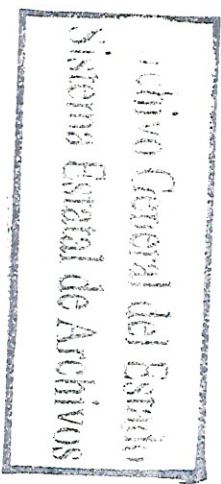 chivo General del Estado
Sistema Estatal de Archivos